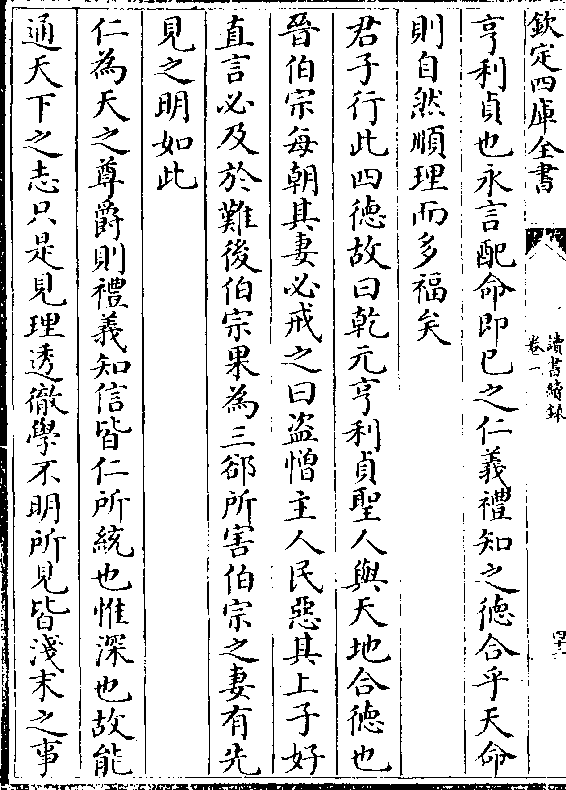 欽定四庫全書
讀書續錄
卷一
四十二
亨利貞也永言配命即已之仁義禮知之德合乎天命
則自然順理而多福矣
君子行此四德故曰乾元亨利貞聖人與天地合德也
晉伯宗每朝其妻必戒之曰盜憎主人民惡其上子好
直言必及於難後伯宗果為三郤所害伯宗之妻有先
見之明如此
仁為天之尊爵則禮義知信皆仁所統也惟深也故能
通天下之志只是見理透徹學不明所見皆淺末之事